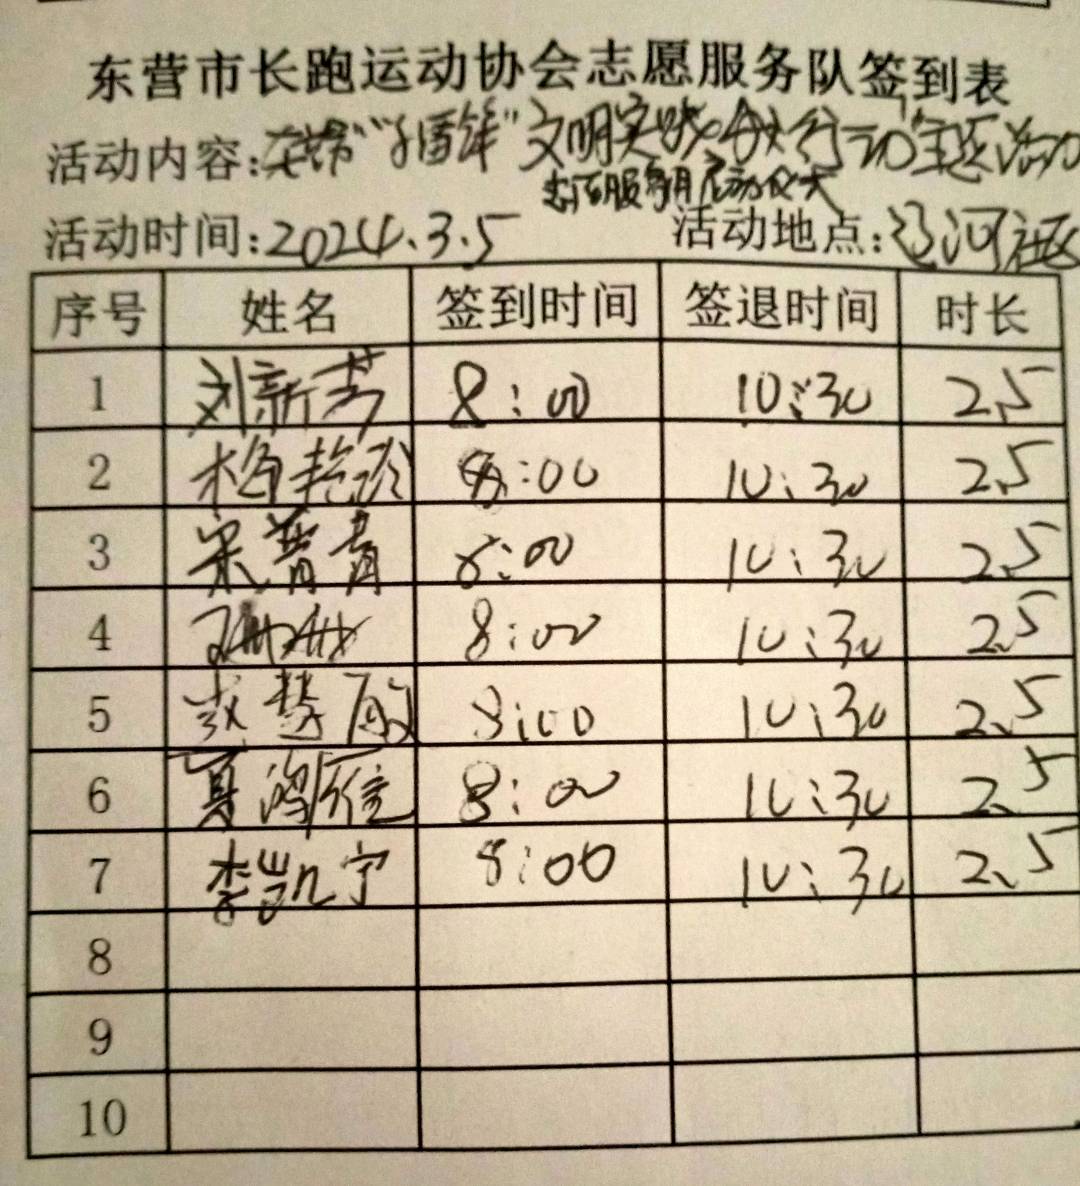 东营市长跑运动协会志愿服务队签到表
活动内容: "文明实践 行动"主题活动
志愿服务月启动仪式
活动时间:2024.3.5 活动地点:辽河社区
序号 姓名 签到时间 签退时间 时长
1 刘新芳 8:00 10:30 2.5
2 梅艳玲 8:00 10:30 2.5
3 宋普青 8:00 10:30 2.5
4 8:00 10:30 2.5
5 慧敏 8:00 10:30 2.5
6 夏鸿雁 8:00 10:30 2.5
7 李凯宁 8:00 10:30 2.5
8
9
10